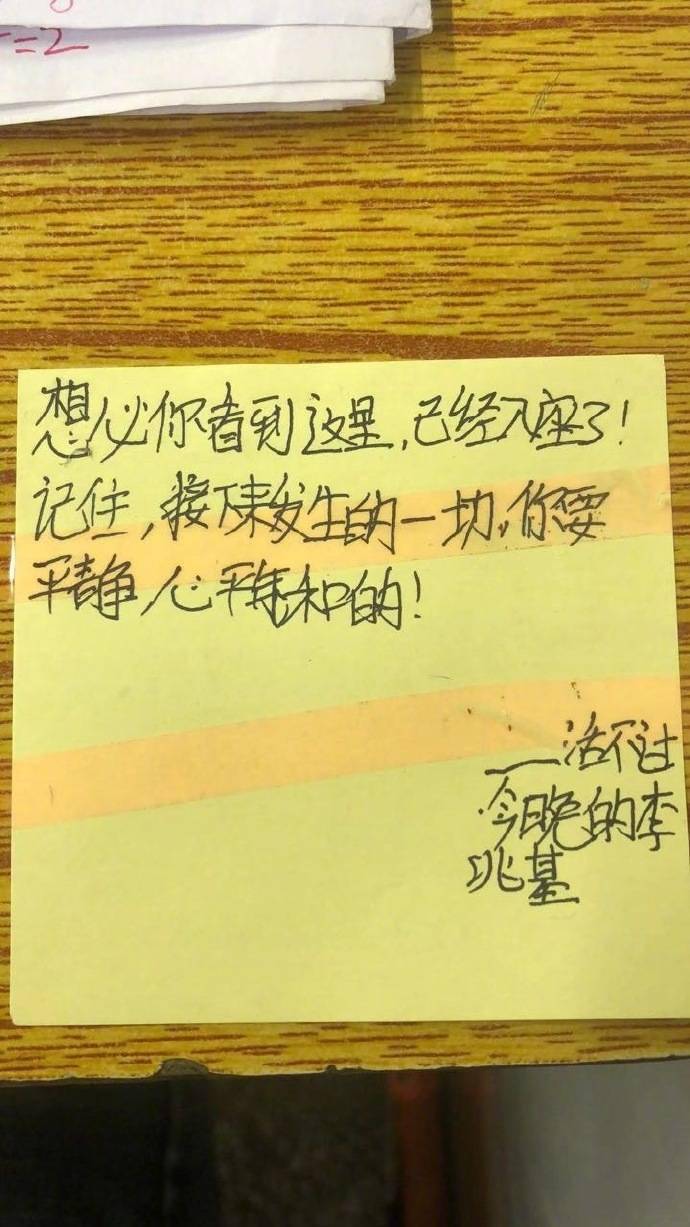 =2
想必你看到这里,已经入座了!
记住,接下来发生的一切,你要
平静,心平气和的!
——活不过
今晚的李
兆基